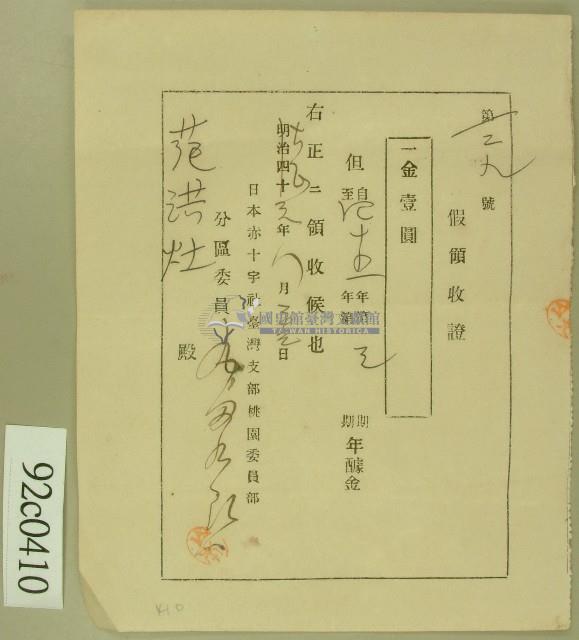 第二九號
假領收證
一金壹圓
但 自 四十五年 年第 期
至 年第 期 年醵金
右正ニ領收候也
明治四十 元年八月 日
日本赤十字社臺灣支部桃園委員部
分區委員
范洪灶 殿
國史館臺灣文獻館
TAIWAN HISTORICA
92c0410